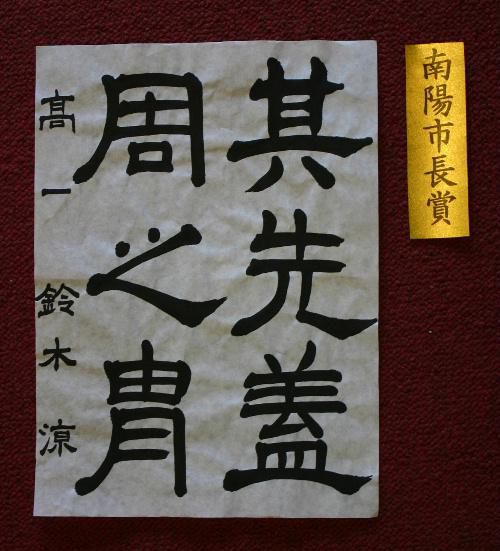 南陽市長賞
其先蓋
周之冑
髙一 鈴木涼